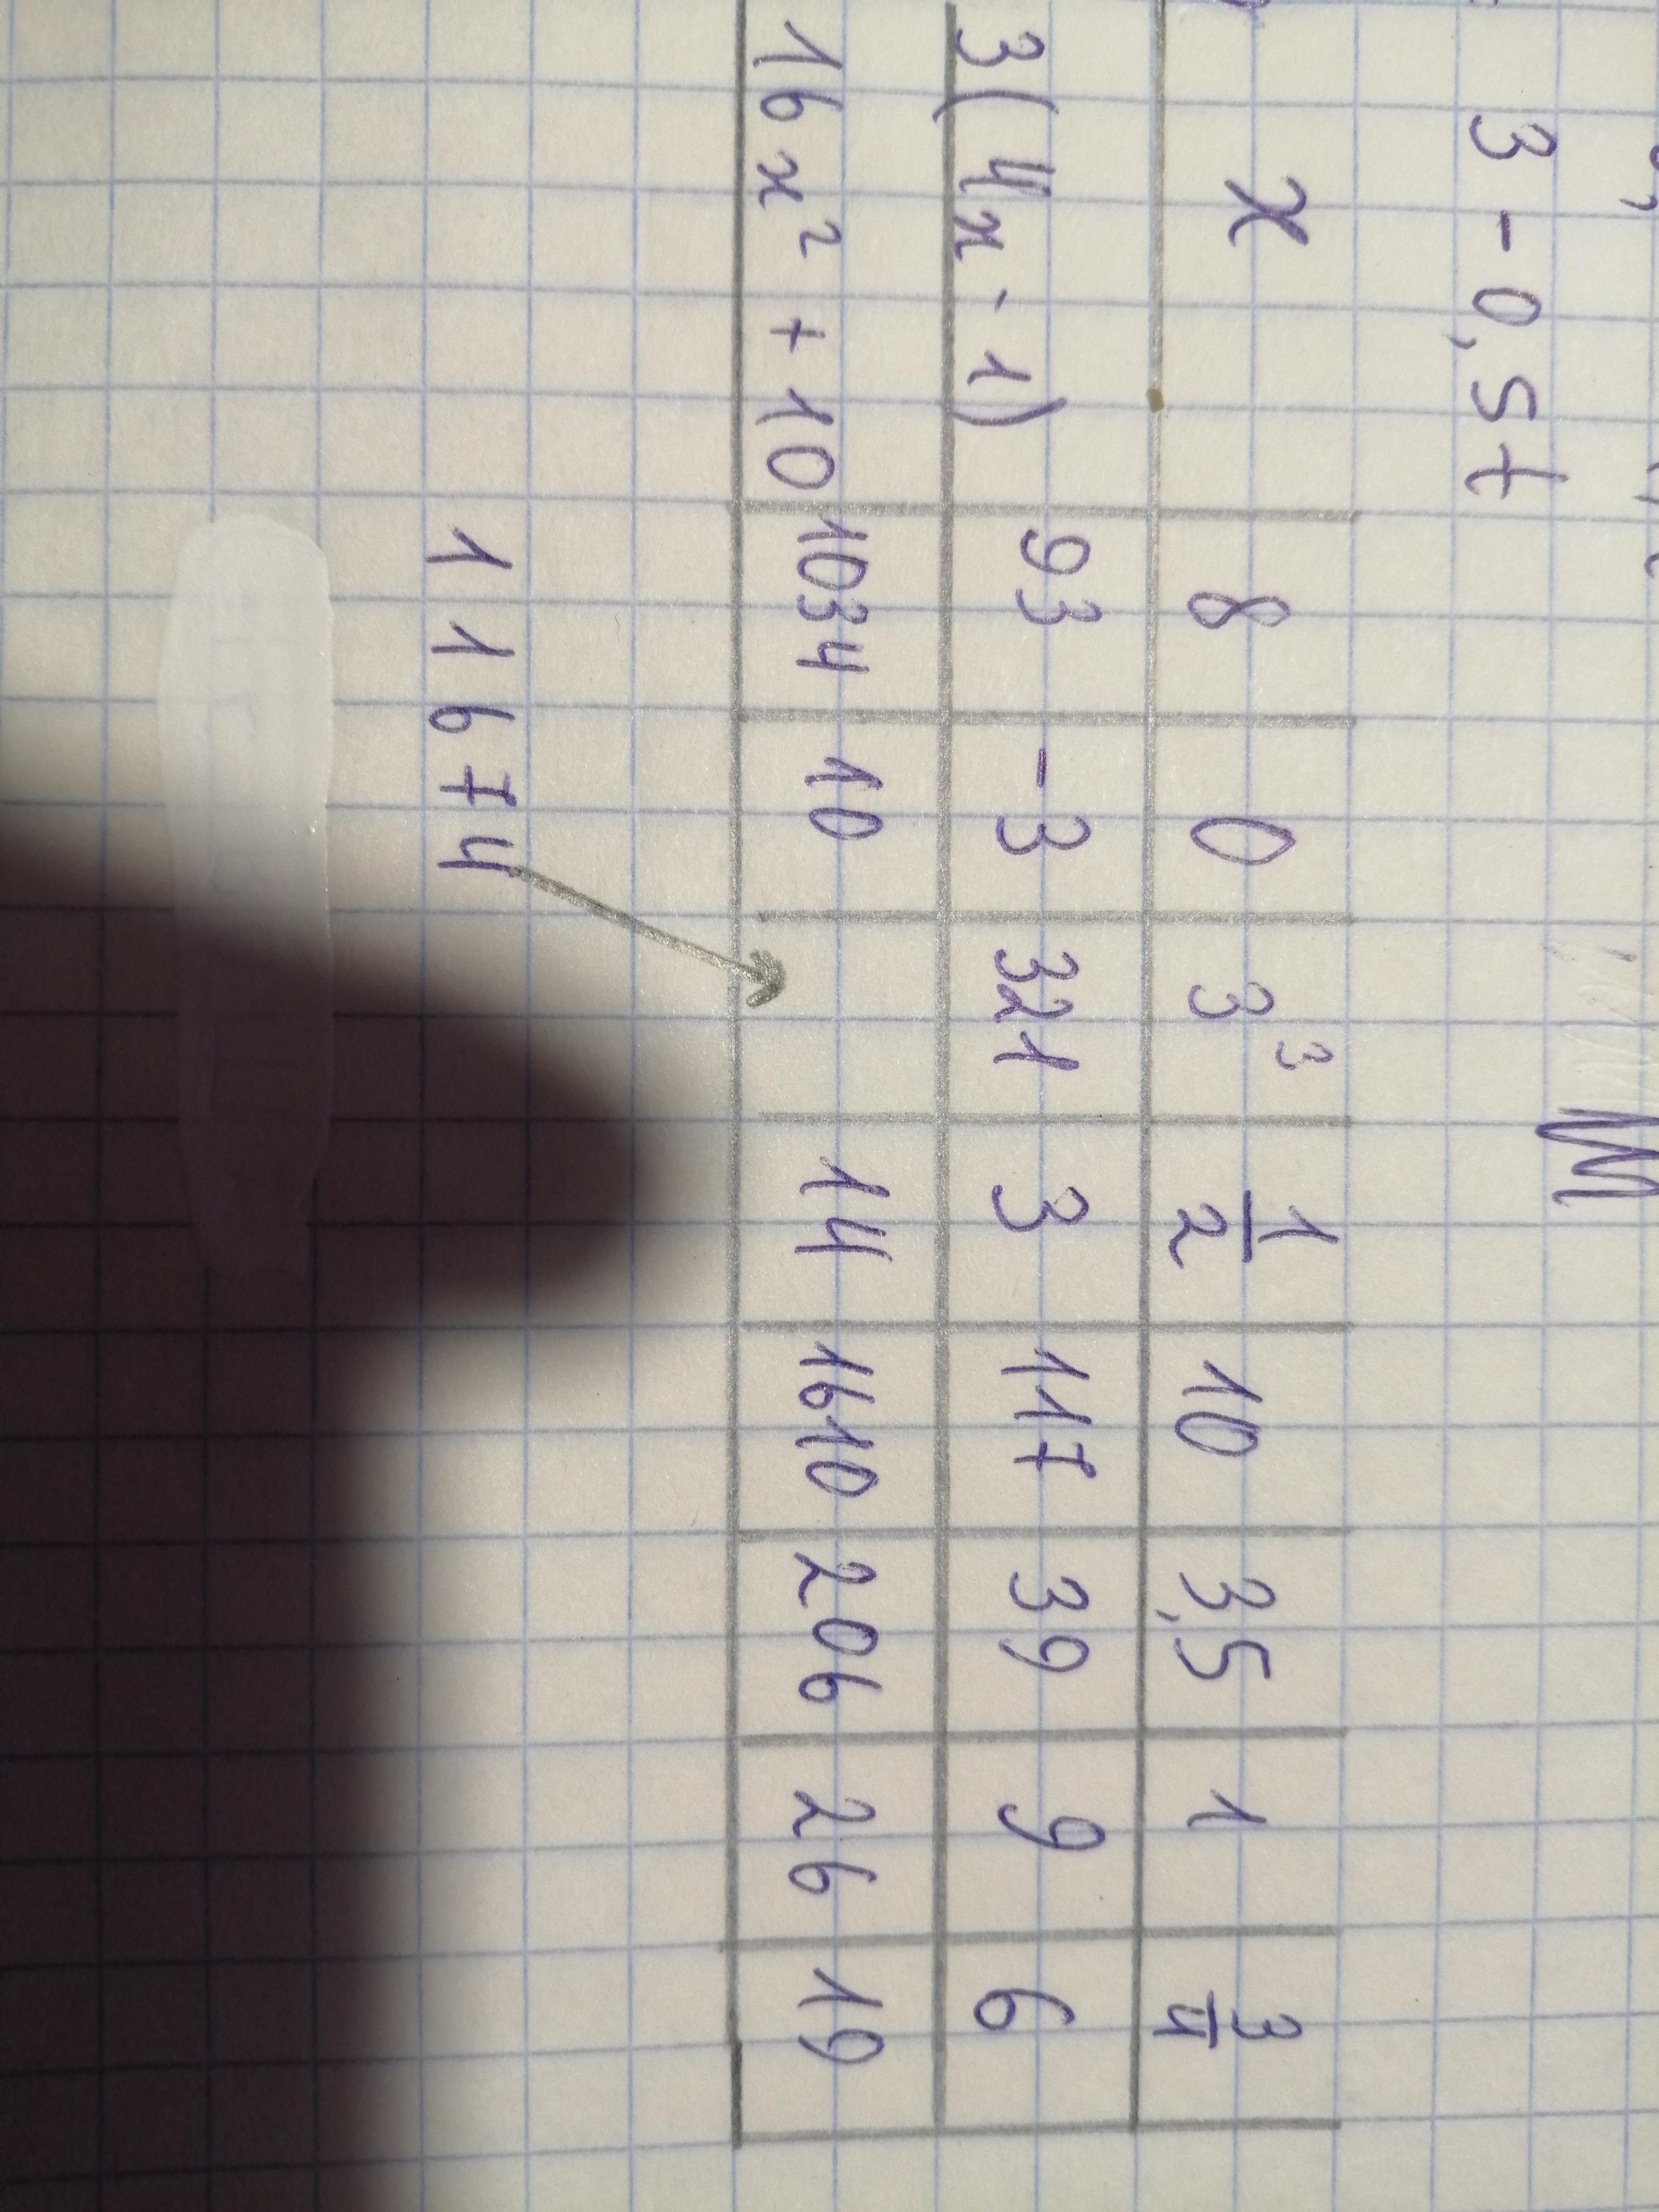 3 - 0,5t
x 8 0 3³ 1/2 10 3,5 1 3/4
3(4x - 1) 93 -3 321 3 117 39 9 6
16x² + 10 1034 10 14 1610 206 26 19
11674